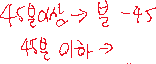 45분 이상 → 분 - 45
45분 이하 →